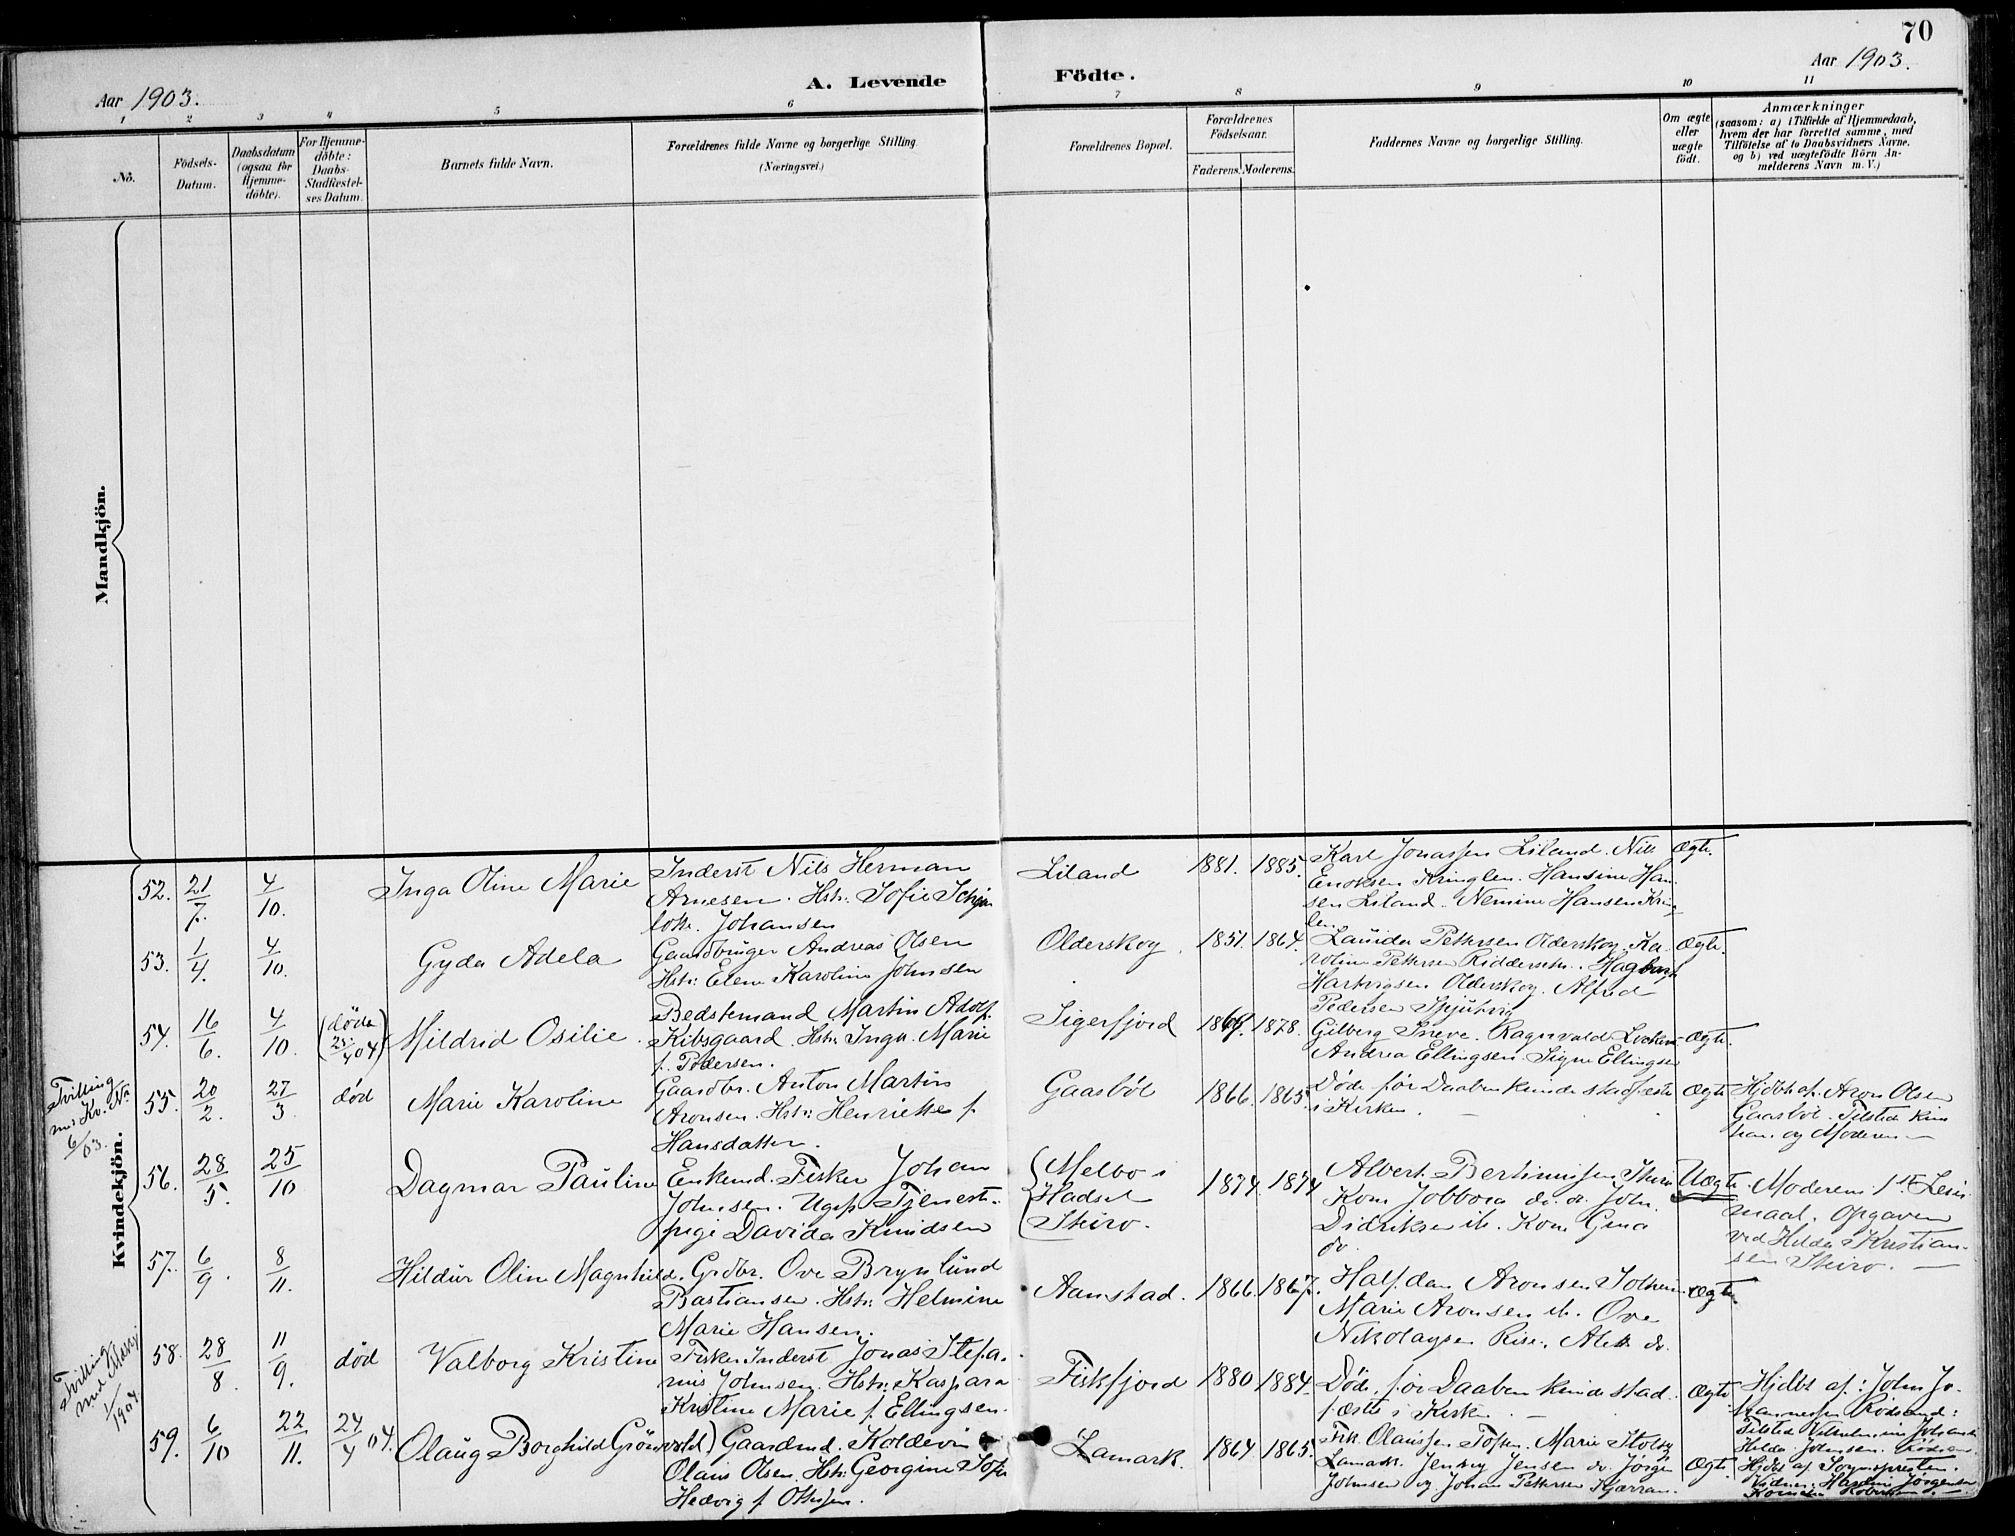 70
Aar 1903.
A. Levende
Födte.
Aar 1903.
1
2
3
4
5
6
7
8
9
10
11
No.
Födsels-
Datum.
Daabsdatum
(ogsaa for
Hjemme-
döbte).
For Hjemme-
döbte:
Daabs-
Stadfæstel-
ses Datum.
Barnets fulde Navn.
Forældrenes fulde Navne og borgerlige Stilling
(Næringsvei.)
Forældrenes Bopæl.
Forældrenes
Födselsaar.
Faderens.
Moderens.
Faddernes Navne og borgerlige Stilling.
Om ægte
eller
uægte
födt.
Anmærkninger
(saasom: a) i Tilfælde af Hjemmedaab,
hvem der har forrettet samme, med
Tilföielse af to Daabsvidners Navne.
og b) ved uægtefödte Börn An-
melderens Navn m. V.)
Mandkjön.
Kvindekjön.
52. 21/7. 4/10. Inga Oline Marie
Inderst Nils Herman
Arnesen. Hstr. Sofie
Johansen
Liland 1881. 1885.
Karl Jonassen Liland. Nils
Enoksen Kringlen. Hansine Han-
sen Liland. Nemine Hansen Krin-
len
Ægte.
53. 1/4. 4/10. Gyda Adela
Gaardbruger Andreas Olsen
Hstr. Elene Karoline Johnsen
Olderskog. 1851. 1864.
Lauida Pettersen Olderskog. Ka-
roline Pettersen
Hartvigsen Olderskog. Alfred
Pedersen
Ægte.
54. 16/6. 4/10. (døde 25/4 04) Mildrid Osilie.
Bedstemand Martin Adolf
Kibsgaard. Hstr. Inga Marie
f. Pedersen.
Sigerfjord 1869. 1878.
Gilberg Sneve. Ragnvald
Andrea Ellingsen. Signe Ellingsen
Ægte.
Tvilling
med Kv. No.
6/03.
55. 20/2. 27/3 død Marie Karoline
Gaardbr. Anton Martin
Aronsen. Hstr. Henriette f.
Hansdatter.
Gaasbøl 1866. 1865.
Døde før Daaben kunde stadfæstes
i Kirken.
Ægte
Hjdbt af. Aron Olsen
Gaasbøl. Tilsted
og Moderen
56. 28/5. 25/10 Dagmar Pauline
Enkemd. Fisker Johan
Johnsen. Ugif. Tjeneste-
pige Davida Knudsen
Melbo i
Hadsel
Skiro.
1874. 1874
Albert Bertinussen Skiro
Kone Jobbora do. o. John
Didriksen ib. Kone Gina
do
Uægte.
Moderens 1st Leier-
maal. Opgaven
ved Hilda Kristian-
sen Skiro.
57. 6/9. 8/11. Hildur Olin Magnhild.
Grdbr. Ove Brynlund
Bastiansen. Hstr. Helmine
Marie Hansen.
Aanstad. 1866. 1867.
Halfdan Aronsen
Marie Aronsen ib. Ove
Nikolaysen Rise.
Ægte.
Tvilling
med
1/1904.
58. 28/8. 11/9. død Valborg Kristine
Fisker Inderst Jonas Stefa-
nus Johnsen. Hstr. Kaspara
Kristine Marie f. Ellingsen.
Fiskfjord 1880 1884.
Døde før Daaben kunde stad-
fæstes i Kirken.
Ægte
Hjdbt af: John Jo-
hannessen
Hilda Johnsen.
59. 6/10 22/11. 24/4 04. Olaug Borghild Grönvold)
Gaardmd. Koldevin
Olaus Olsen. Hstr. Georgine Sofie
Hedvig f. Ottesen.
Lamark. 1864. 1865.
Fik. Olaussen Toften. Marie
Lamark. Jensen do. Jørgen
Johnsen og Johan Pettersen Kjærran.
Ægte.
Hjdbt af Sognepresten.
Vidner: Jørgensen